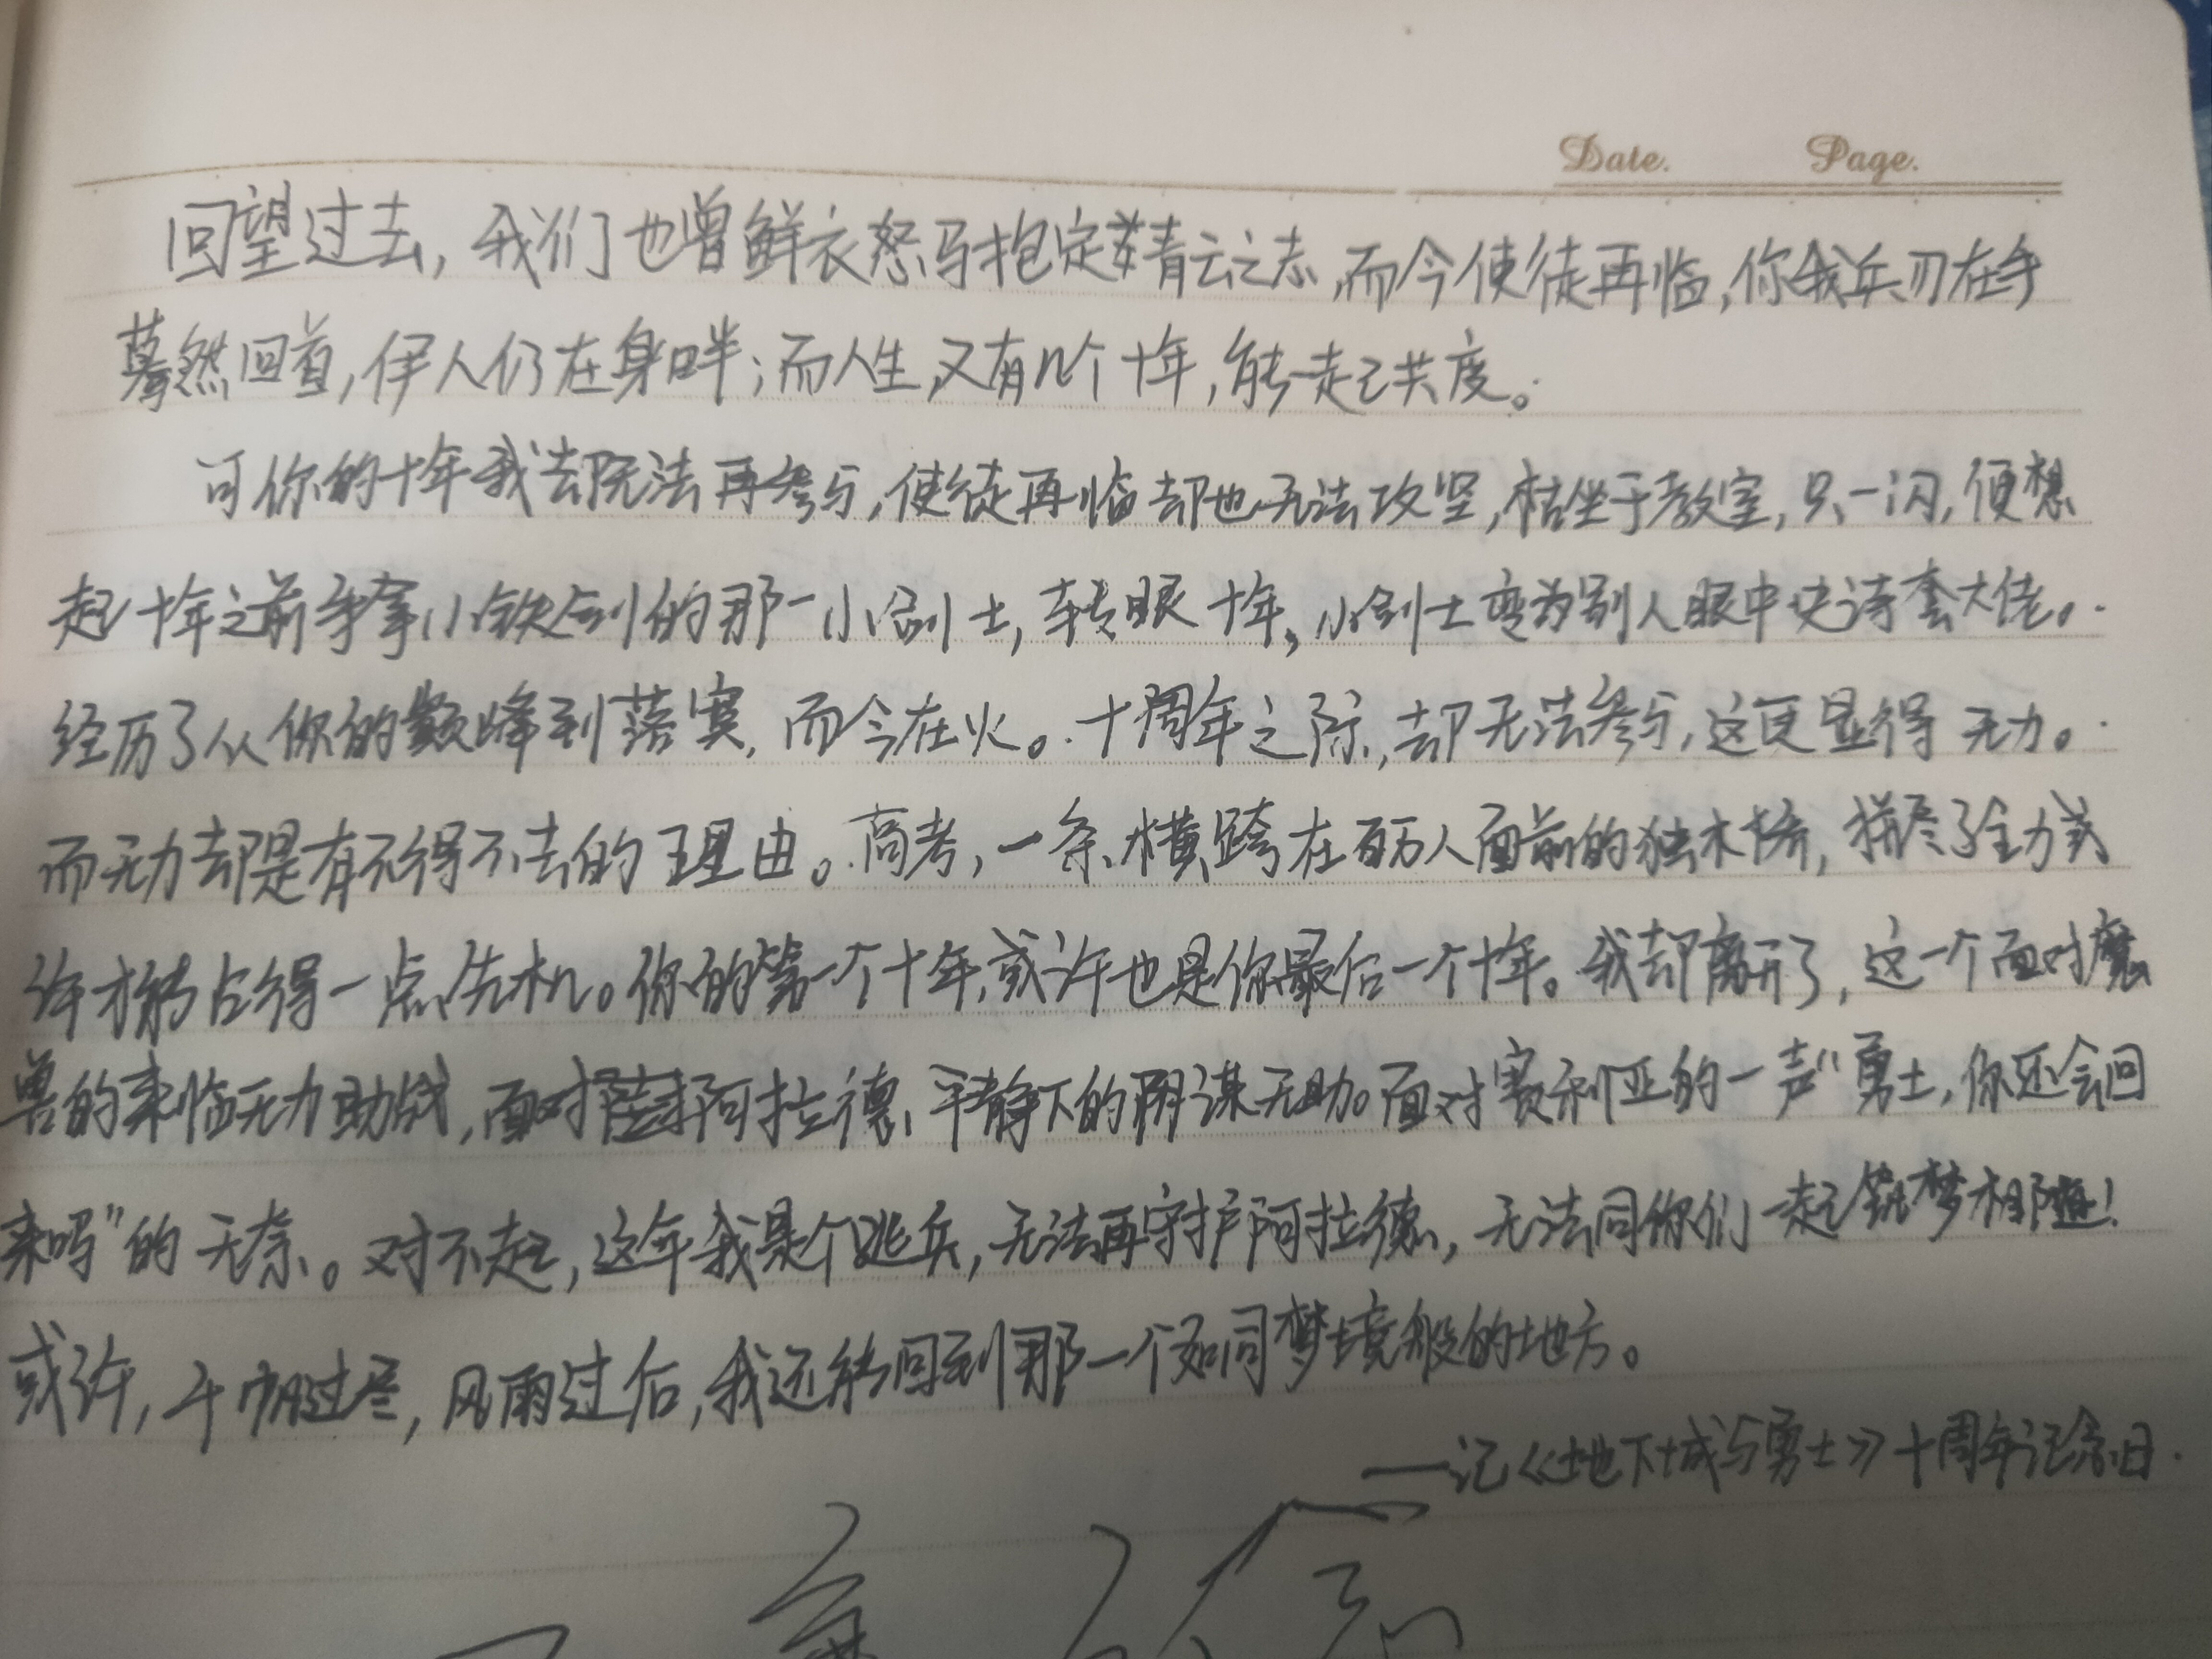 Date. Page.
回望过去，我们也曾鲜衣怒马抱定青云之志，而今使徒再临，你我兵刃在手
蓦然回首，伊人仍在身畔；而人生，又有几个十年，能一起共度。
可你的十年我却无法再参与，使徒再临却也无法攻坚，枯坐于教室，只一闪，便想
起十年之前手拿小铁剑的那一小剑士，转眼十年，小剑士变为别人眼中史诗套大佬。
经历了从你的巅峰到落寞，而今在火。十周年之际，却无法参与，这更显得无力。
而无力却是有不得不去的理由。高考，一条横跨在百万人面前的独木桥，拼尽了全力或
许才能占得一点先机。你的第一个十年，或许也是你最后一个十年。我却离开了，这一个面对魔
兽的来临无力助战，面对阿拉德、平静下的阴谋无助。面对赛利亚的一声“勇士，你还会回
来吗”的无奈。对不起，这年我是个逃兵，无法再守护阿拉德，无法同你们一起筑梦相随！
或许，千帆过尽，风雨过后，我还能回到那一个如同梦境般的地方。
——记《地下城与勇士》十周年记念日.